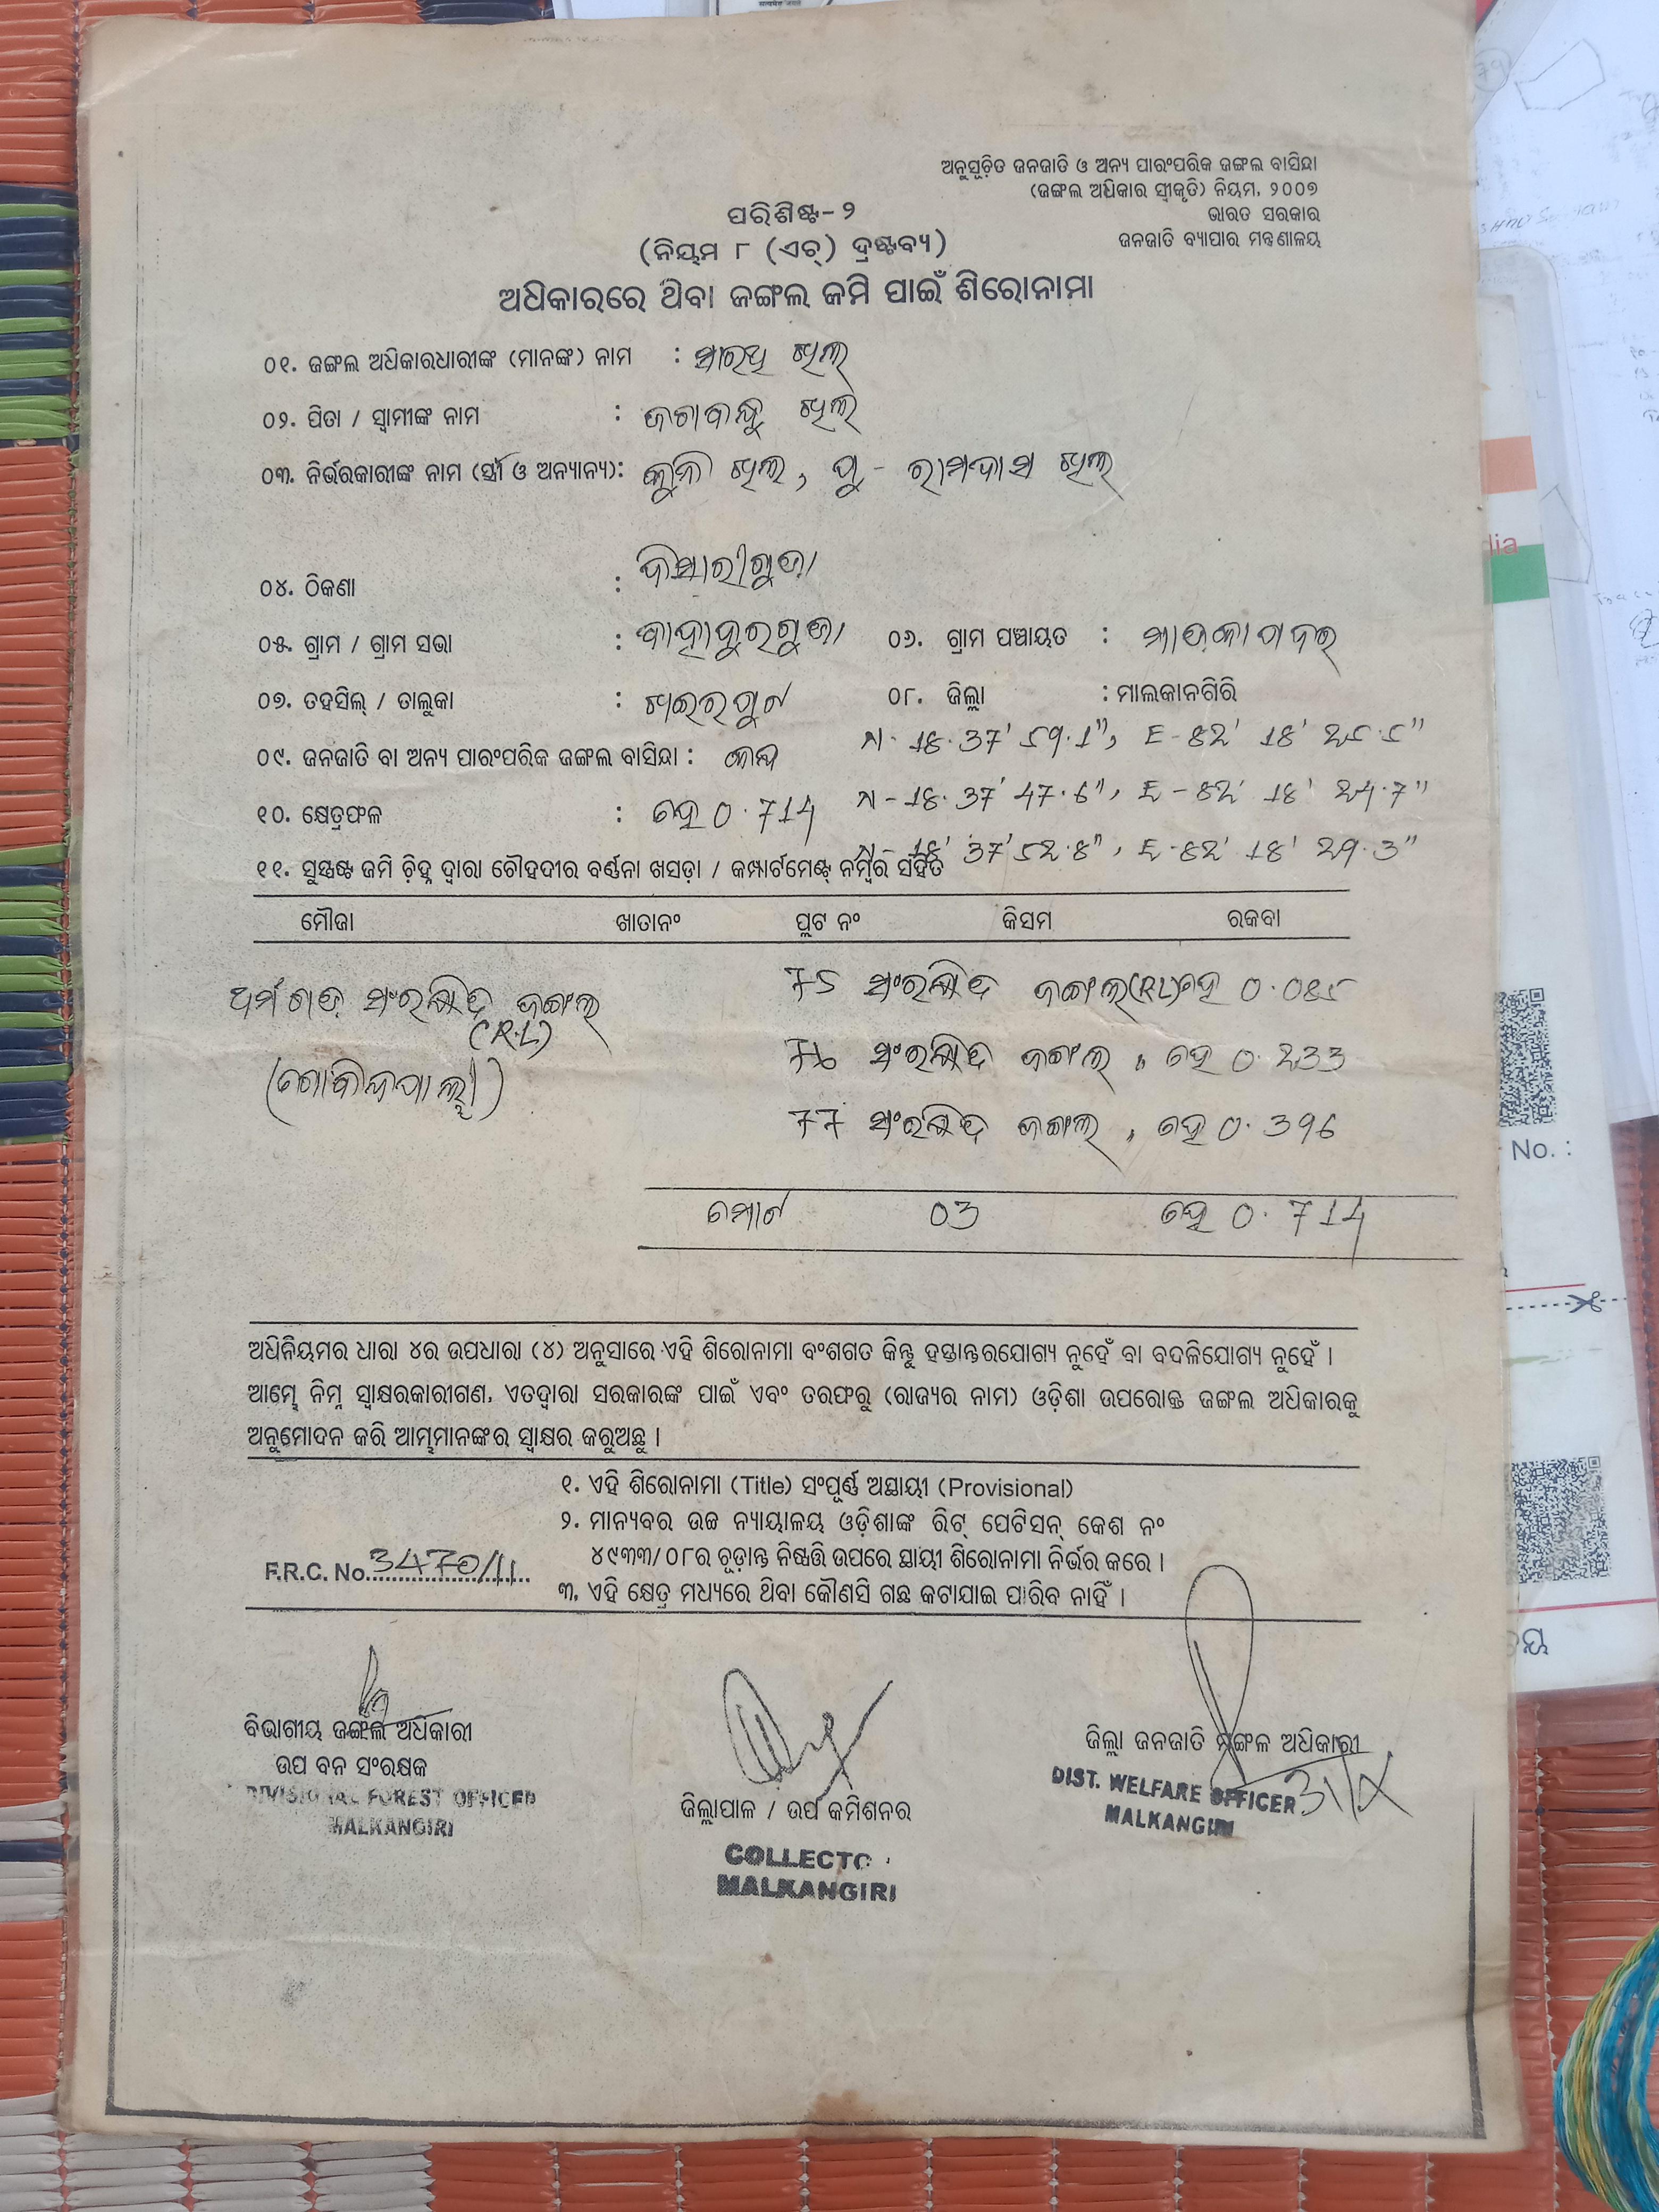 ଅନୁସୂଚିତ ଜନଜାତି ଓ ଅନ୍ୟ ପାରଂପରିକ ଜଙ୍ଗଲ ବାସିନ୍ଦା
(ଜଙ୍ଗଲ ଅଧିକାର ସ୍ୱୀକୃତି) ନିୟମ, ୨୦୦୭
ଭାରତ ସରକାର
ଜନଜାତି ବ୍ୟାପାର ମନ୍ତ୍ରଣାଳୟ
ପରିଶିଷ୍ଟ-୨
(ନିୟମ ୮ (ଏଚ୍) ଦ୍ରଷ୍ଟବ୍ୟ)
ଅଧିକାରରେ ଥିବା ଜଙ୍ଗଲ ଜମି ପାଇଁ ଶିରୋନାମା
୦୧. ଜଙ୍ଗଲ ଅଧିକାରଧାରୀଙ୍କ (ମାନଙ୍କ) ନାମ :
୦୨. ପିତା / ସ୍ୱାମୀଙ୍କ ନାମ : ଜଗବନ୍ଧୁ
୦୩. ନିର୍ଭରକାରୀଙ୍କ ନାମ (ସ୍ତ୍ରୀ ଓ ଅନ୍ୟାନ୍ୟ): ପୁ - ରାମଦାସ
୦୪. ଠିକଣା :
୦୫. ଗ୍ରାମ / ଗ୍ରାମ ସଭା : ୦୬. ଗ୍ରାମ ପଞ୍ଚାୟତ :
୦୭. ତହସିଲ୍ / ତାଲୁକା : ଖଇରପୁଟ ୦୮. ଜିଲ୍ଲା : ମାଲକାନଗିରି
N- 18. 37' 59.1", E-82' 18' 25.5"
୦୯. ଜନଜାତି ବା ଅନ୍ୟ ପାରଂପରିକ ଜଙ୍ଗଲ ବାସିନ୍ଦା :
N-18. 37' 47.6", E-82' 18' 24.7"
୧୦. କ୍ଷେତ୍ରଫଳ : ହେ 0.714
N-18' 37' 52.8", E-82' 18' 29.3"
୧୧. ସୁସ୍ପଷ୍ଟ ଜମି ଚିହ୍ନ ଦ୍ୱାରା ଚୌହଦୀର ବର୍ଣନା ଖସଡ଼ା / କମ୍ପାର୍ଟମେଣ୍ଟ୍ ନମ୍ବର ସହିତ
ମୌଜା ଖାତାନଂ ପ୍ଲଟ ନଂ କିସମ ରକବା
ଧର୍ମଗଡ଼ ସଂରକ୍ଷିତ ଜଙ୍ଗଲ 75 ସଂରକ୍ଷିତ ଜଙ୍ଗଲ(RL)ହେ 0.085
(R.L)
(ଗୋବିନ୍ଦପାଲ୍ଲୀ) 76 ସଂରକ୍ଷିତ ଜଙ୍ଗଲ " ହେ 0.233
77 ସଂରକ୍ଷିତ ଜଙ୍ଗଲ " ହେ 0.396
ମୋଟ 03 ହେ 0.714
ଅଧିନିୟମର ଧାରା ୪ର ଉପଧାରା (୪) ଅନୁସାରେ ଏହି ଶିରୋନାମା ବଂଶଗତ କିନ୍ତୁ ହସ୍ତାନ୍ତରଯୋଗ୍ୟ ନୁହେଁ ବା ବଦଳିଯୋଗ୍ୟ ନୁହେଁ ।
ଆମ୍ଭେ ନିମ୍ନ ସ୍ୱାକ୍ଷରକାରୀଗଣ, ଏତଦ୍ୱାରା ସରକାରଙ୍କ ପାଇଁ ଏବଂ ତରଫରୁ (ରାଜ୍ୟର ନାମ) ଓଡ଼ିଶା ଉପରୋକ୍ତ ଜଙ୍ଗଲ ଅଧିକାରକୁ
ଅନୁମୋଦନ କରି ଆମ୍ଭମାନଙ୍କର ସ୍ୱାକ୍ଷର କରୁଅଛୁ ।
୧. ଏହି ଶିରୋନାମା (Title) ସଂପୂର୍ଣ ଅସ୍ଥାୟୀ (Provisional)
୨. ମାନ୍ୟବର ଉଚ୍ଚ ନ୍ୟାୟାଳୟ ଓଡ଼ିଶାଙ୍କ ରିଟ୍ ପେଟିସନ୍ କେଶ ନଂ
୪୯୩୩/୦୮ର ଚୂଡ଼ାନ୍ତ ନିଷ୍ପତ୍ତି ଉପରେ ସ୍ଥାୟୀ ଶିରୋନାମା ନିର୍ଭର କରେ ।
F.R.C. No. 3470/11
୩. ଏହି କ୍ଷେତ୍ର ମଧ୍ୟରେ ଥିବା କୌଣସି ଗଛ କଟାଯାଇ ପାରିବ ନାହିଁ ।
ବିଭାଗୀୟ ଜଙ୍ଗଲ ଅଧିକାରୀ
ଉପ ବନ ସଂରକ୍ଷକ
DIVISIONAL FOREST OFFICER
MALKANGIRI
ଜିଲ୍ଲାପାଳ / ଉପ କମିଶନର
COLLECTO
MALKANGIRI
ଜିଲ୍ଲା ଜନଜାତି ମଙ୍ଗଳ ଅଧିକାରୀ
DIST. WELFARE OFFICER
MALKANGIRI
No. :